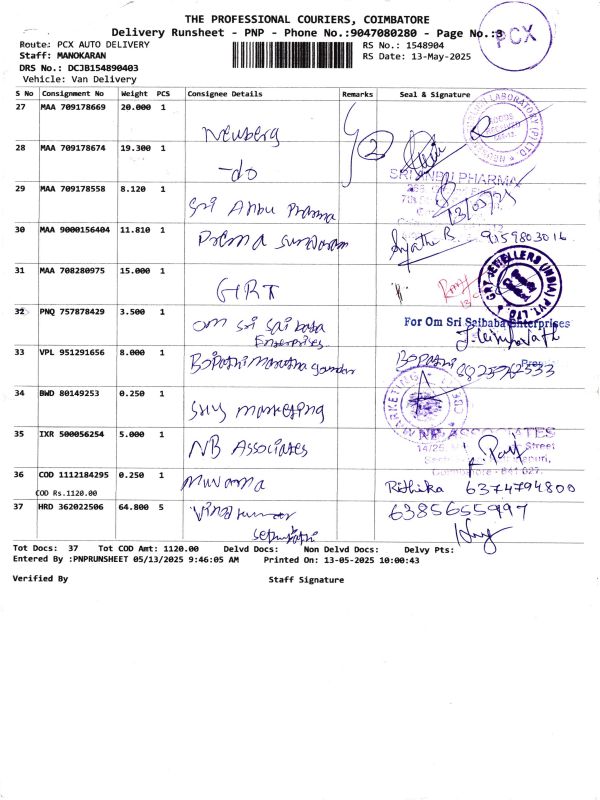 THE PROFESSIONAL COURIERS, COIMBATORE
Delivery Runsheet - PNP - Phone No.:9047080280 - Page No.:3
PCX
Route: PCX AUTO DELIVERY
RS No.: 1548904
Staff: MANOKARAN
RS Date: 13-May-2025
DRS No.: DCJB154890403
Vehicle: Van Delivery
S No Consignment No Weight PCS Consignee Details Remarks Seal & Signature
27 MAA 709178669 20.000 1 Neuberg
2
28 MAA 709178674 19.300 1 -do
SRI ANBU PHARMA
29 MAA 709178558 8.120 1 Sri Anbu Pharma 13/05/25
30 MAA 9000156404 11.810 1 Prema Sundaram Sujatha B. 9159803016
31 MAA 708280975 15.000 1 GRT GRT JEWELLERS (INDIA) PVT. LTD.
32 PNQ 757878429 3.500 1 Om Sri Sai baba Enterprises For Om Sri Saibaba Enterprises
33 VPL 951291656 8.000 1
34 BWD 80149253 0.250 1 Sriys Marketing
35 IXR 500056254 5.000 1 NB Associates NB ASSOCIATES
Coimbatore - 641 027.
36 COD 1112184295 0.250 1 Rithika 6374794800
COD Rs.1120.00
37 HRD 362022506 64.800 5 6385655997
Tot Docs: 37 Tot COD Amt: 1120.00 Delvd Docs: Non Delvd Docs: Delvy Pts:
Entered By :PNPRUNSHEET 05/13/2025 9:46:05 AM Printed On: 13-05-2025 10:00:43
Verified By Staff Signature